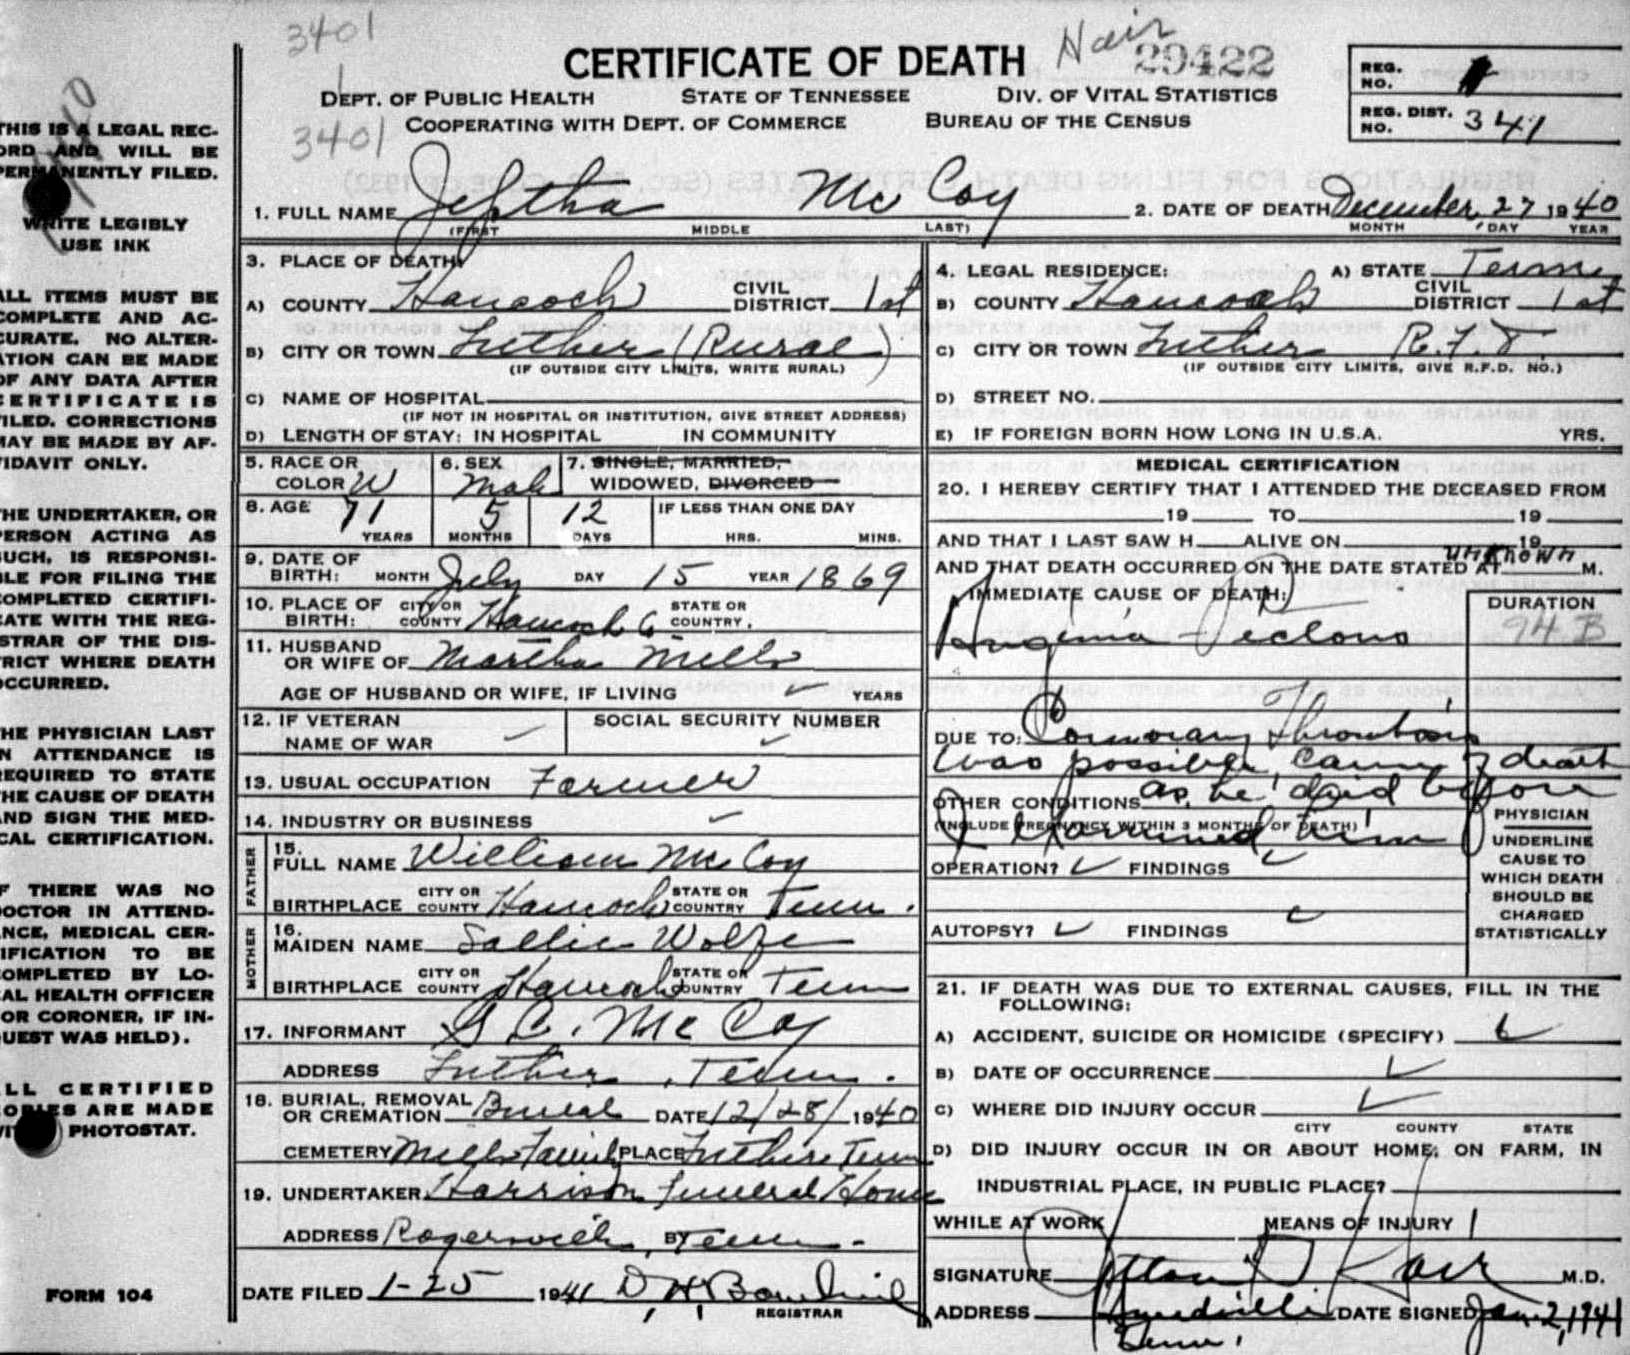 3401
1
3401
CERTIFICATE OF DEATH
Hair
29422
REG. NO. 1
DEPT. OF PUBLIC HEALTH STATE OF TENNESSEE DIV. OF VITAL STATISTICS
COOPERATING WITH DEPT. OF COMMERCE BUREAU OF THE CENSUS
REG. DIST. NO. 341
1. FULL NAME Jeptha McCoy 2. DATE OF DEATH December 27 1940
(FIRST MIDDLE LAST) MONTH DAY YEAR
THIS IS A LEGAL REC-
ORD AND WILL BE
PERMANENTLY FILED.
WRITE LEGIBLY
USE INK
ALL ITEMS MUST BE
COMPLETE AND AC-
CURATE. NO ALTER-
ATION CAN BE MADE
OF ANY DATA AFTER
CERTIFICATE IS
FILED. CORRECTIONS
MAY BE MADE BY AF-
FIDAVIT ONLY.
THE UNDERTAKER, OR
PERSON ACTING AS
SUCH, IS RESPONSI-
BLE FOR FILING THE
COMPLETED CERTIFI-
CATE WITH THE REG-
ISTRAR OF THE DIS-
TRICT WHERE DEATH
OCCURRED.
THE PHYSICIAN LAST
IN ATTENDANCE IS
REQUIRED TO STATE
THE CAUSE OF DEATH
AND SIGN THE MED-
ICAL CERTIFICATION.
IF THERE WAS NO
DOCTOR IN ATTEND-
ANCE, MEDICAL CER-
TIFICATION TO BE
COMPLETED BY LO-
CAL HEALTH OFFICER
(OR CORONER, IF IN-
QUEST WAS HELD).
ALL CERTIFIED
COPIES ARE MADE
WITH PHOTOSTAT.
FORM 104
3. PLACE OF DEATH:
A) COUNTY Hancock CIVIL DISTRICT 1st
B) CITY OR TOWN Luther (Rural)
(IF OUTSIDE CITY LIMITS, WRITE RURAL)
C) NAME OF HOSPITAL
(IF NOT IN HOSPITAL OR INSTITUTION, GIVE STREET ADDRESS)
D) LENGTH OF STAY: IN HOSPITAL IN COMMUNITY
5. RACE OR COLOR W 6. SEX Male 7. SINGLE, MARRIED, WIDOWED, DIVORCED
8. AGE 71 YEARS 5 MONTHS 12 DAYS IF LESS THAN ONE DAY HRS. MINS.
9. DATE OF BIRTH: MONTH July DAY 15 YEAR 1869
10. PLACE OF BIRTH: CITY OR COUNTY Hancock Co STATE OR COUNTRY.
11. HUSBAND OR WIFE OF Martha Mills
AGE OF HUSBAND OR WIFE, IF LIVING YEARS
12. IF VETERAN NAME OF WAR SOCIAL SECURITY NUMBER
13. USUAL OCCUPATION Farmer
14. INDUSTRY OR BUSINESS
FATHER
15. FULL NAME William McCoy
BIRTHPLACE CITY OR COUNTY Hancock STATE OR COUNTRY Tenn.
MOTHER
16. MAIDEN NAME Sallie Wolfe
BIRTHPLACE CITY OR COUNTY Hancock STATE OR COUNTRY Tenn
17. INFORMANT G C. McCoy
ADDRESS Luther, Tenn.
18. BURIAL, REMOVAL OR CREMATION Burial DATE 12/28/1940
CEMETERY Mills Family PLACE Luther Tenn
19. UNDERTAKER Harrison Funeral Home
ADDRESS Rogersville, BY Tenn.
DATE FILED 1-25 1941 D. H. REGISTRAR
4. LEGAL RESIDENCE: A) STATE Tenn
B) COUNTY Hancock CIVIL DISTRICT 1st
C) CITY OR TOWN Luther R.F.D.
(IF OUTSIDE CITY LIMITS, GIVE R.F.D. NO.)
D) STREET NO.
E) IF FOREIGN BORN HOW LONG IN U.S.A. YRS.
MEDICAL CERTIFICATION
20. I HEREBY CERTIFY THAT I ATTENDED THE DECEASED FROM
19 TO 19
AND THAT I LAST SAW H ALIVE ON 19
AND THAT DEATH OCCURRED ON THE DATE STATED AT unknown M.
IMMEDIATE CAUSE OF DEATH: DURATION
Angina Pectoris 94B
DUE TO: Coronary Thrombosis
was possible cause of death
OTHER CONDITIONS as he died before
(INCLUDE PREGNANCY WITHIN 3 MONTHS OF DEATH)
I examined him
PHYSICIAN
UNDERLINE
CAUSE TO
WHICH DEATH
SHOULD BE
CHARGED
STATISTICALLY
OPERATION? FINDINGS
AUTOPSY? FINDINGS
21. IF DEATH WAS DUE TO EXTERNAL CAUSES, FILL IN THE
FOLLOWING:
A) ACCIDENT, SUICIDE OR HOMICIDE (SPECIFY)
B) DATE OF OCCURRENCE
C) WHERE DID INJURY OCCUR
CITY COUNTY STATE
D) DID INJURY OCCUR IN OR ABOUT HOME, ON FARM, IN
INDUSTRIAL PLACE, IN PUBLIC PLACE?
WHILE AT WORK MEANS OF INJURY
SIGNATURE Hair M.D.
ADDRESS Sneedville DATE SIGNED Jan. 2, 1941
Tenn.